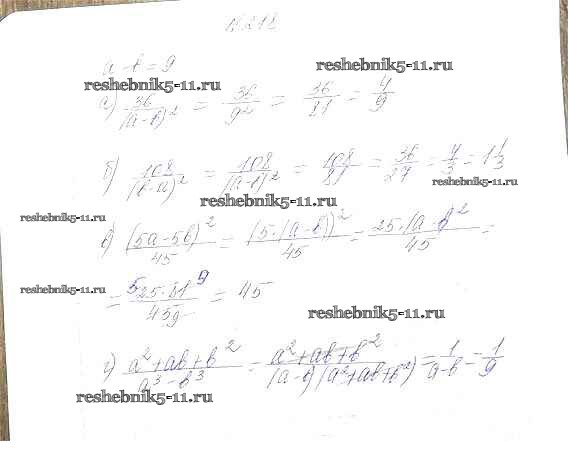 №218
reshebnik5-11.ru
a - b = 9
reshebnik5-11.ru
а) 36/(a-b)² = 36/9² = 36/81 = 4/9
б) 108/(b-a)² = 108/(a-b)² = 108/81 = 36/27 = 4/3 = 1 1/3
reshebnik5-11.ru
reshebnik5-11.ru
reshebnik5-11.ru
в) (5a-5b)²/45 = (5·(a-b))²/45 = 25·(a-b)²/45 =
reshebnik5-11.ru
= 5 25·81 9/45 9 = 45
reshebnik5-11.ru
г) a²+ab+b²/a³-b³ = a²+ab+b²/(a-b)(a²+ab+b²) = 1/a-b = 1/9
reshebnik5-11.ru